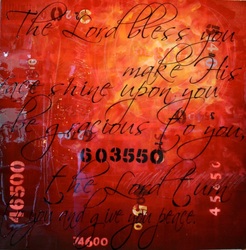 The Lord bless you
make His
ace shine upon you
be gracious to you
603550
the Lord turn
and give you peace.
46500
45650
74600